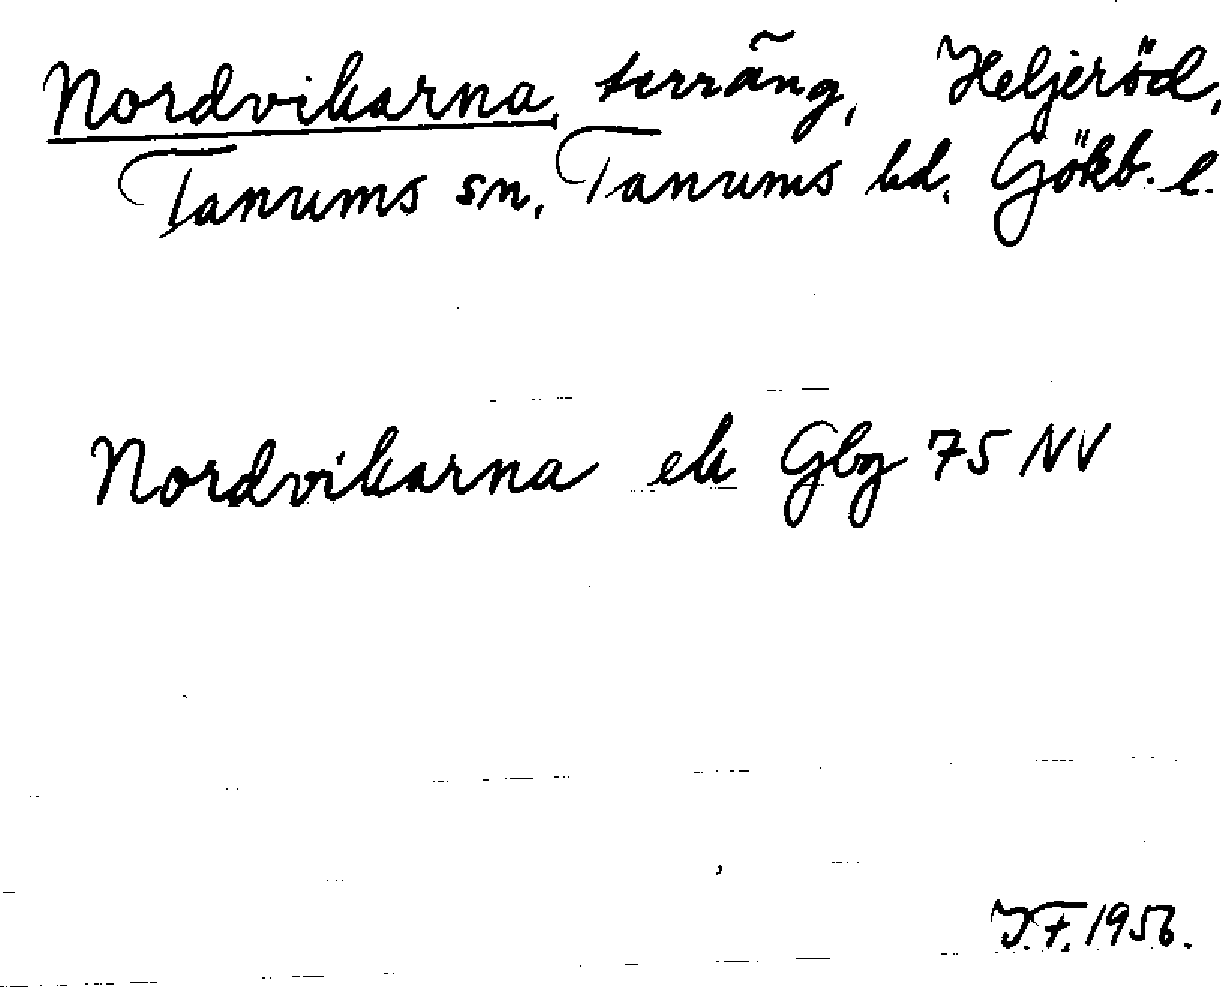 Nordvikarna, terräng, Heljeröd,
Tanums sn, Tanums hd, Gökb. l.
Nordvikarna ek Gbg 75 NV
J.F. 1956.